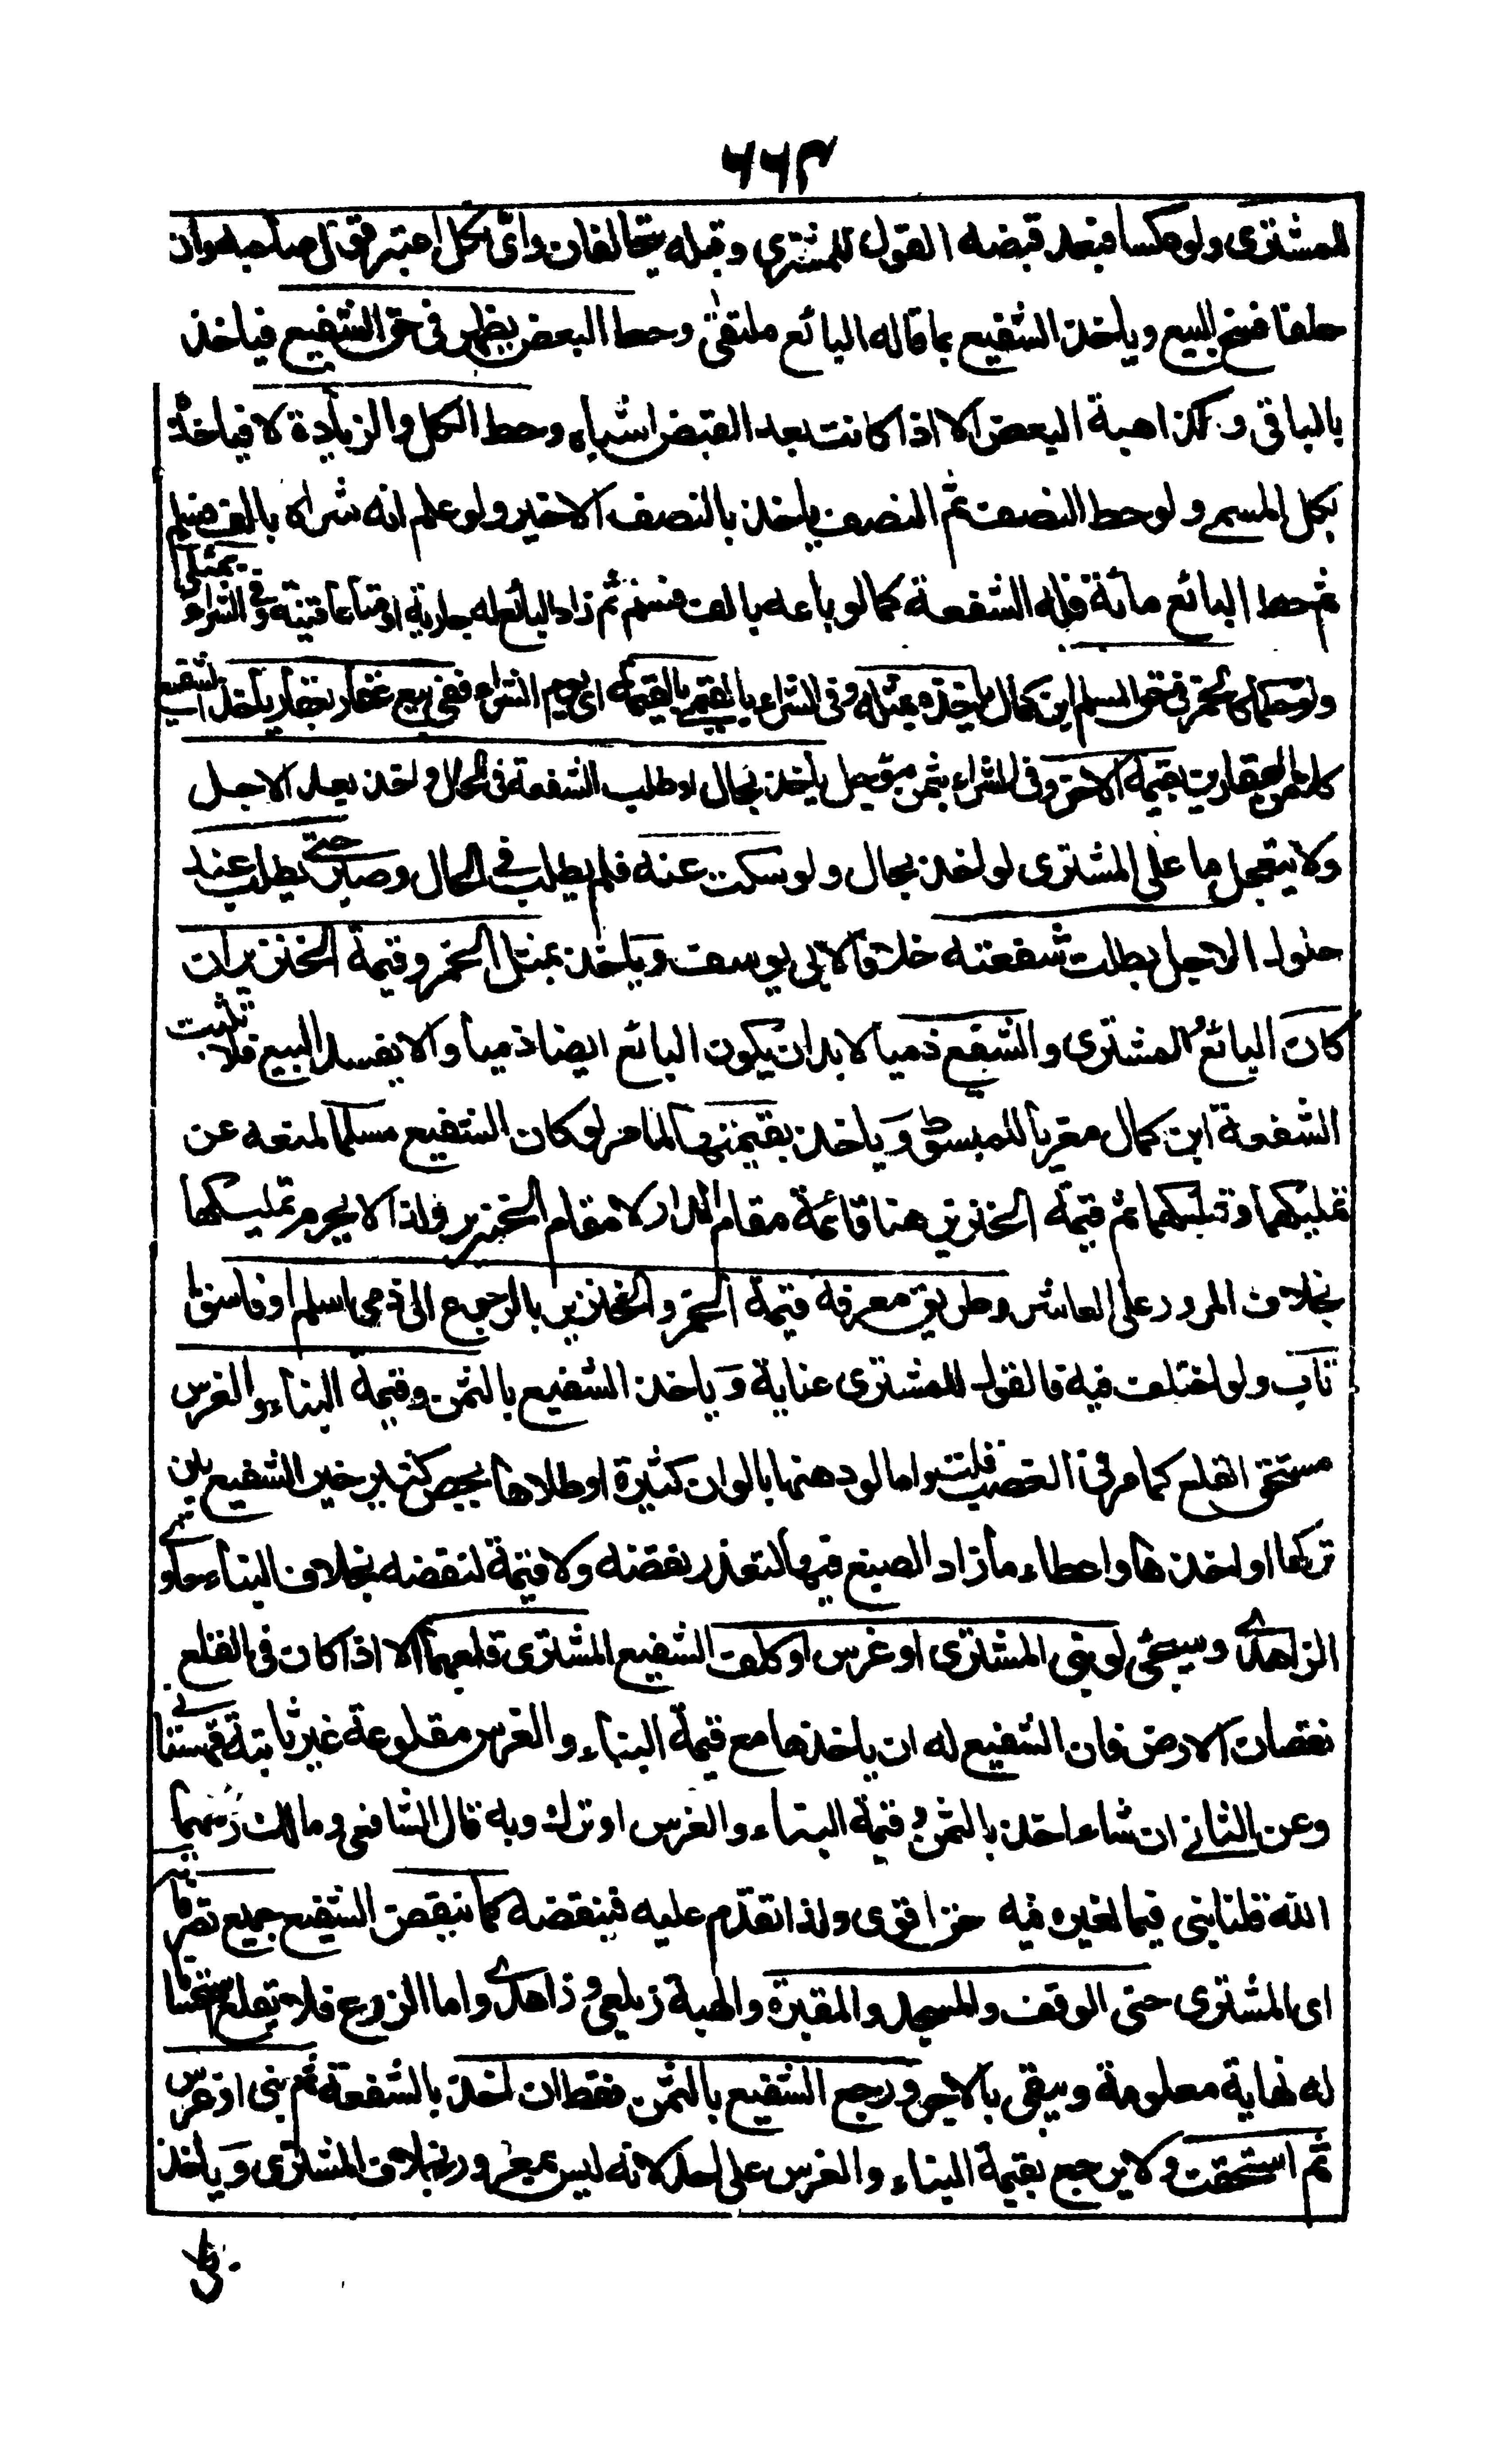 ٦٦٣
للمشتري ولو عكسا فبعد قبضه القول للمشتري وقبله يتحالفان واي نكل اعتبر قول صاحبه وان
حلفا فسخ البيع وياخذ الشفيع بما قاله البائع ملتقى وحط البعض يظهر في حق الشفيع فياخذ
بالباقي وكذا هبة البعض الا اذا كانت بعد القبض اشباه وحط الكل والزيادة لا فياخذ
بكل المسمى ولو حط النصف ثم النصف ياخذ بالنصف الاخير ولو علم انه شراه بالف فسلم
ثم حط البائع مائة فله الشفعة كما لو باعه بالف فسلم ثم زاد البائع له جارية او متاعا قنية وفي الشراء بمثلي
ولو حكما كخمر في حق المسلم ابن كمال ياخذه بمثله وفي الشراء بالقيمي بالقيمة اي يوم الشراء ففي بيع عقار بعقار ياخذ الشفيع
كلا من العقارين بقيمة الاخر وفي الشراء بثمن مؤجل ياخذ بحال او طلب الشفعة في الحال واخذ بعد الاجل
ولا يتعجل ما على المشتري لو اخذ بحال ولو سكت عنه فلم يطلب في الحال وصبر حتى يطلب عند
حلول الاجل بطلت شفعته خلافا لابي يوسف وياخذ بمثل الخمر وقيمة الخنزير ان
كان البائع والمشتري والشفيع ذميا لا بد ان يكون البائع ايضا ذميا والا يفسد البيع فلا تثبت
الشفعة ابن كمال معزيا للمبسوط وياخذ بقيمتهما لما مر لو كان الشفيع مسلما لمنعه عن
تمليكهما وتملكهما ثم قيمة الخنزير هنا قائمة مقام الدار لا مقام الخنزير ولذا لا يحرم تمليكها
بخلاف المرور على العاشر وطريق معرفة قيمة الخمر والخنزير بالرجوع الى ذمي اسلم او فاسق
تاب ولو اختلف فيه فالقول للمشتري عناية وياخذ الشفيع بالثمن وقيمة البناء والغرس
مستحقي القلع كما مر في الغصب قلت واما لو دهنها بالوان كثيرة او طلاها بجص كثير خير الشفيع بين
تركها او اخذها واعطاء ما زاد الصبغ فيها لتعذر نقضه ولا قيمة لنقضه بخلاف البناء حاوي
الزاهدي وسيجئ لو بنى المشتري او غرس او كلف الشفيع المشتري قلعهما الا اذا كان في القلع
نقصان الارض فان الشفيع له ان ياخذها مع قيمة البناء والغرس مقلوعة غير ثابتة قهستاني
وعن الثاني ان شاء اخذ بالثمن وقيمة البناء والغرس او ترك وبه قال الشافعي ومالك رحمهما
الله قلنا بنى فيما لغيره فيه حق اقوى ولذا تقدم عليه فينقضه كما ينقض الشفيع جميع تصرفاته
اي المشتري حتى الوقف والمسجد والمقبرة والهبة زيلعي وزاهدي واما الزرع فلا يقلع استحسانا
له نهاية معلومة ويبقى بالاجر ورجع الشفيع بالثمن فقط ان اخذ بالشفعة ثم بنى او غرس
ثم استحقت ولا يرجع بقيمة البناء والغرس على احد لانه ليس بمغرور بخلاف المشتري وياخذ